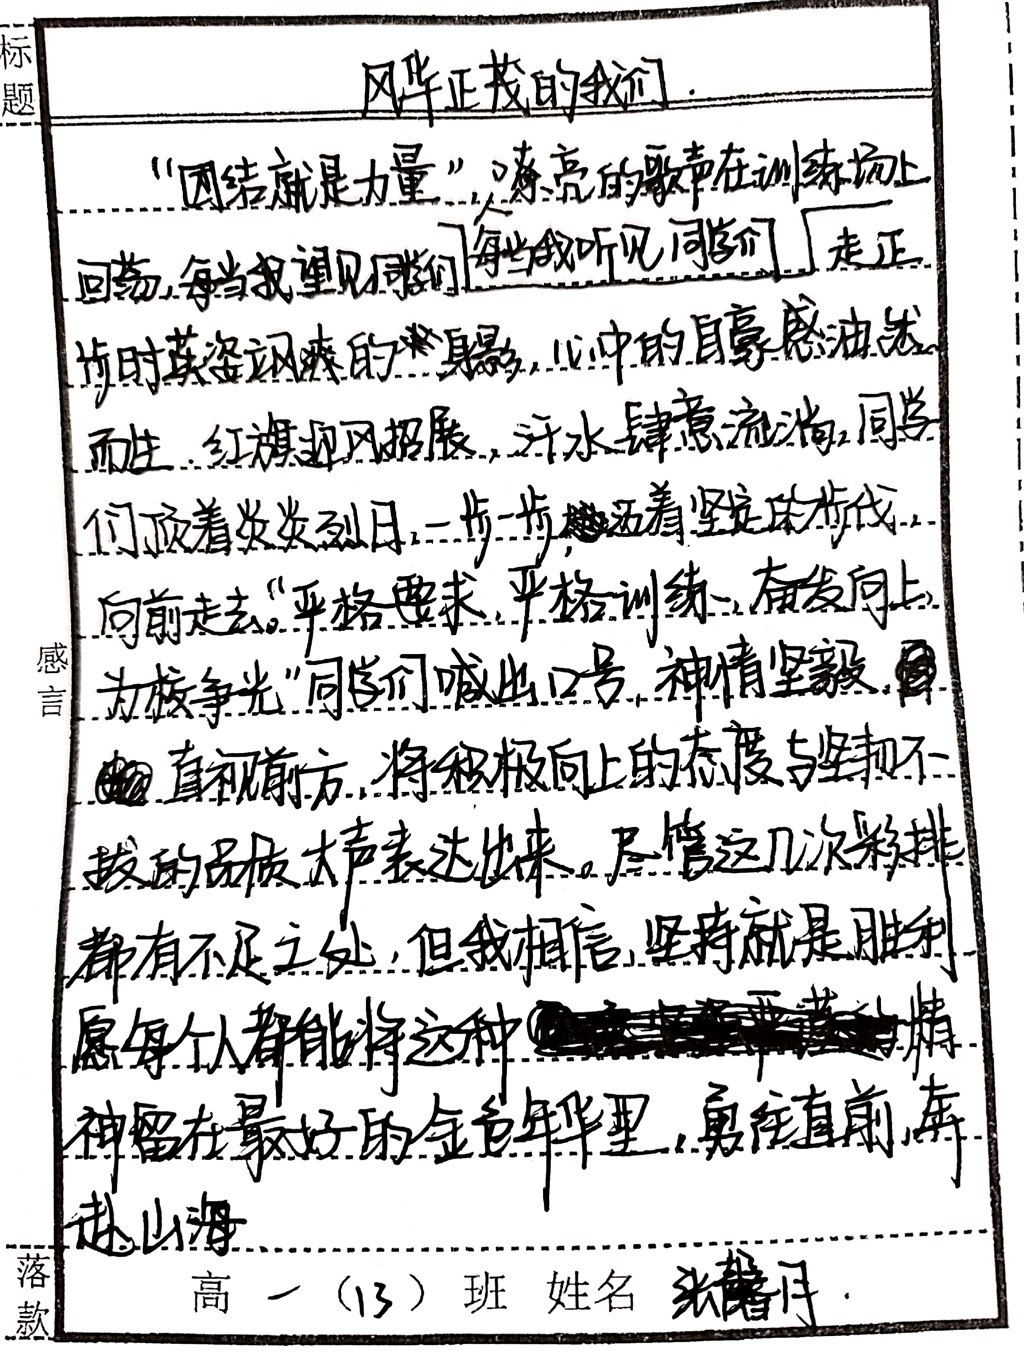 标题
风华正茂的我们.
“团结就是力量”,嘹亮的歌声在训练场上
回荡,每当我望见同学们 每当我听见同学们 走正
步时英姿飒爽的身影,心中的自豪感油然
而生.红旗迎风招展,汗水肆意流淌,同学
们顶着炎炎烈日,一步一步,迈着坚定的步伐,
向前走去。“严格要求,严格训练,奋发向上,
为校争光”同学们喊出口号,神情坚毅,
直视前方,将积极向上的态度与坚韧不
拔的品质大声表达出来。尽管这几次彩排
都有不足之处,但我相信,坚持就是胜利
愿每个人都能将这种精
神留在最好的金色年华里,勇往直前,奔
赴山海
感言
落款
高一(13)班 姓名 张馨月.